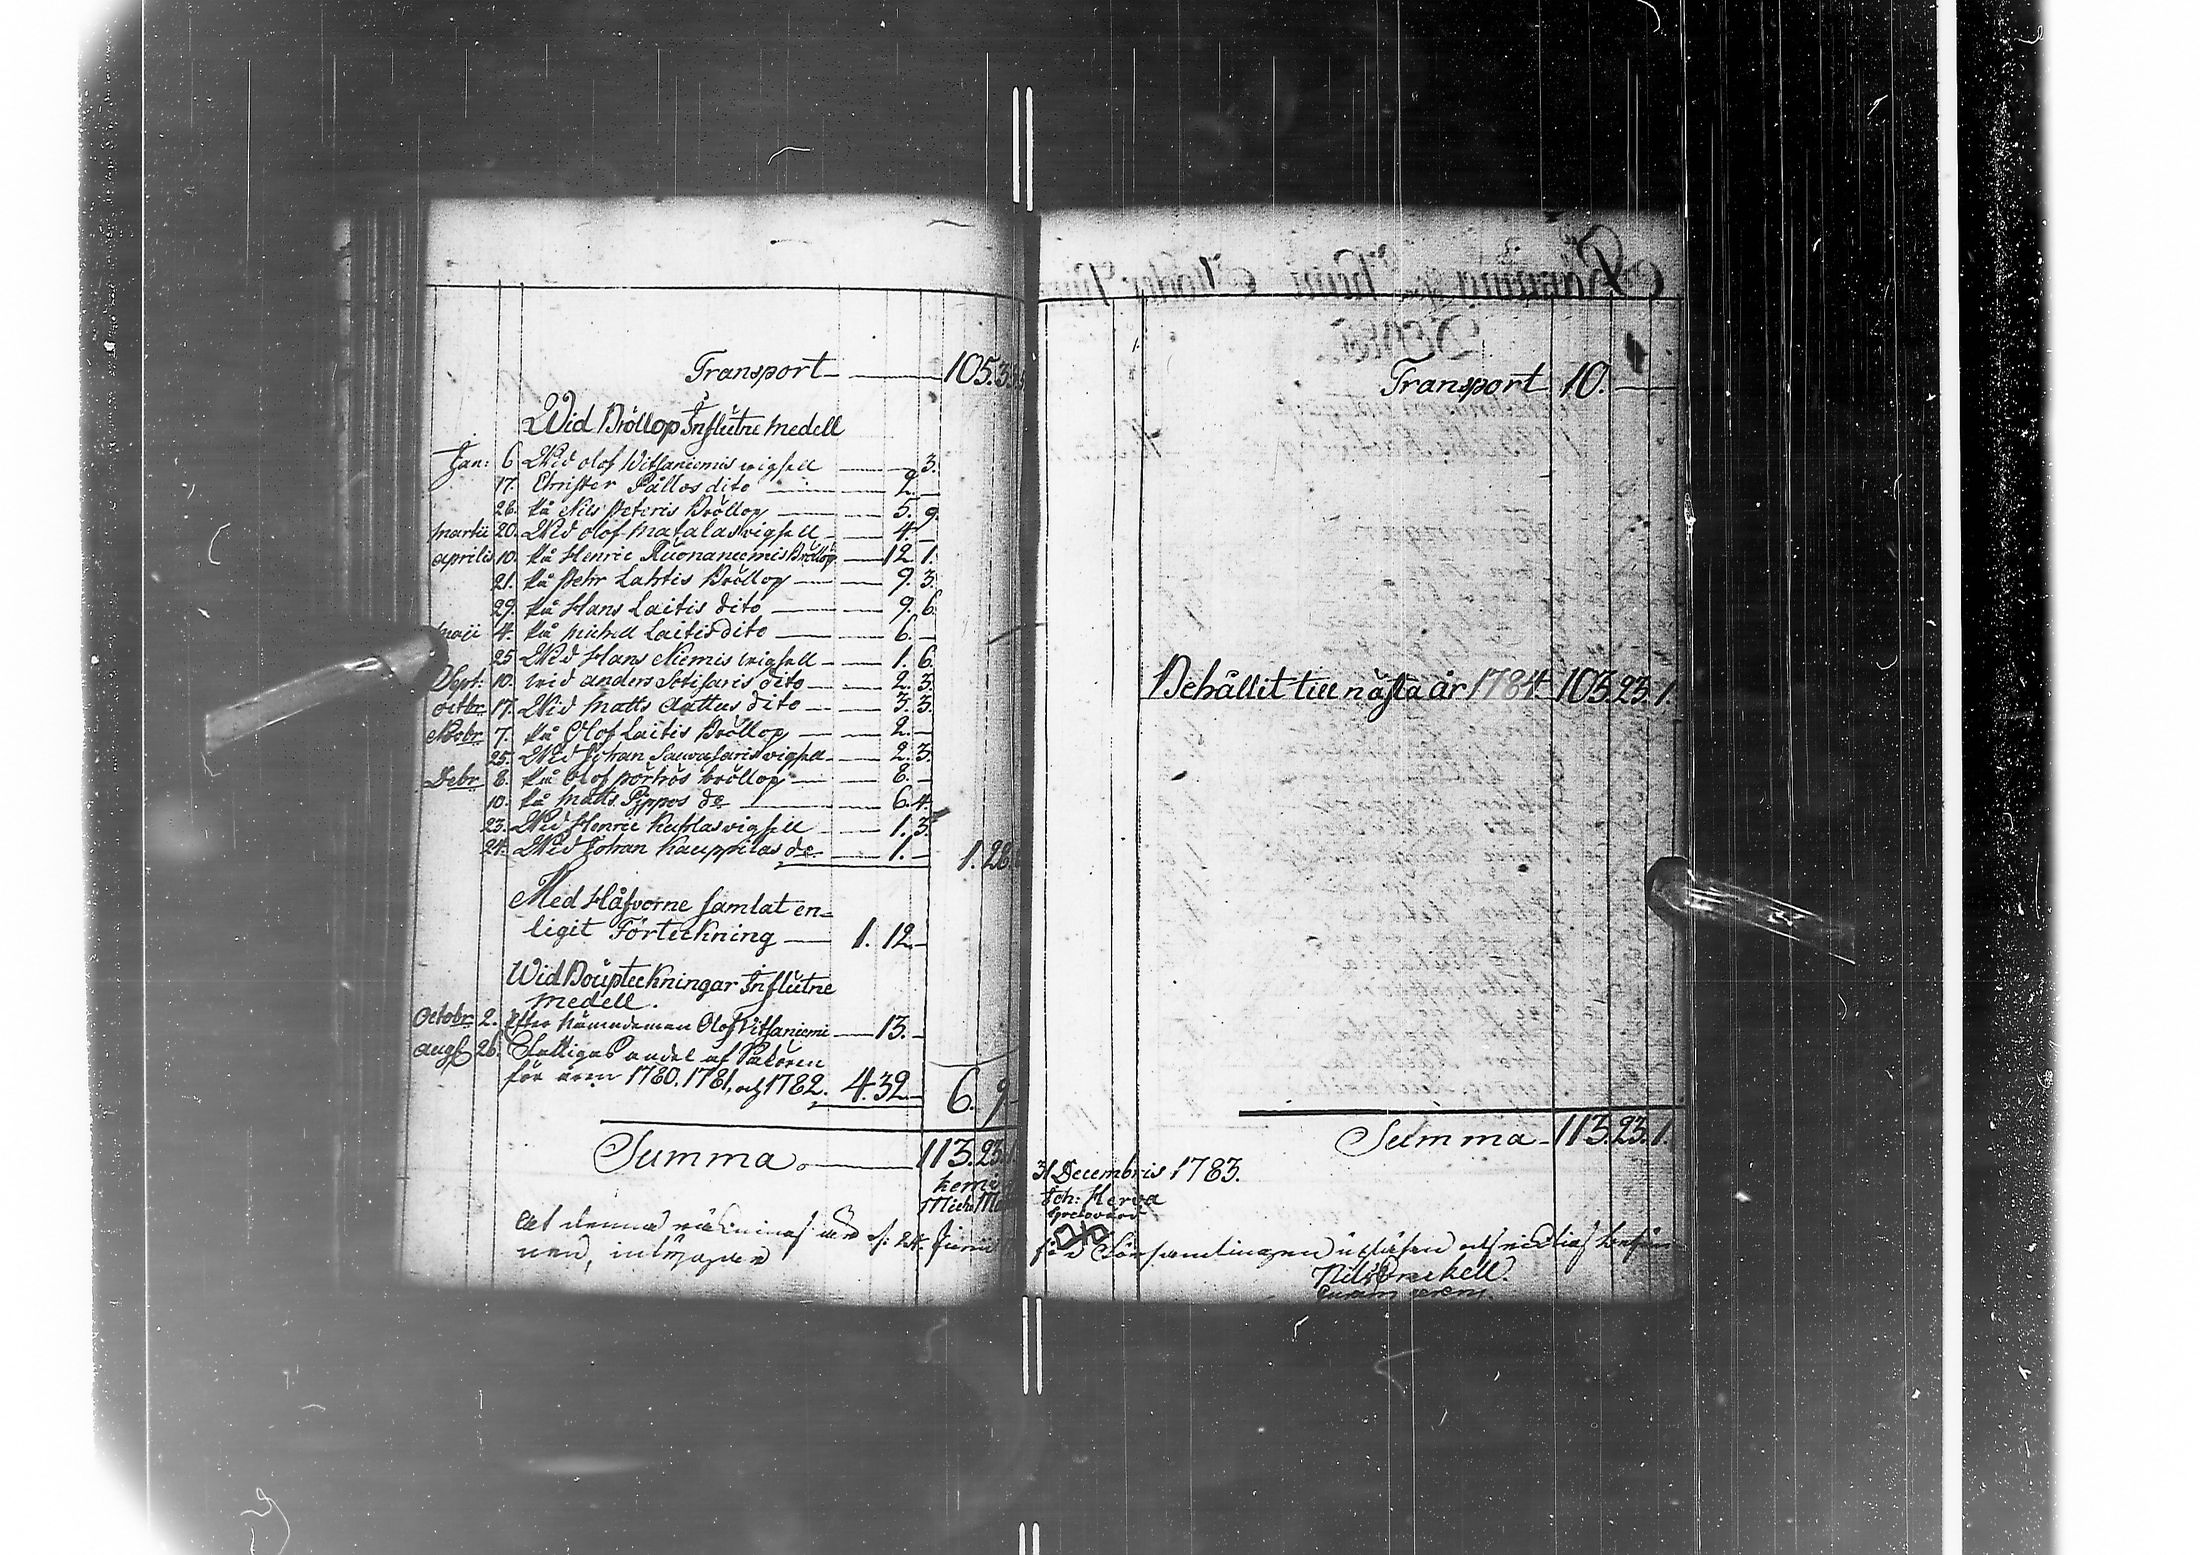 Transport 105. 3.
Wid Bröllop Influtne medell
Jan: 6. Wid Olof Witsaniemis wigsell 3.
17. Christer Pallos dito 2.
26. På Nils Peteris Bröllop 5. 9.
Martii 20. Wid Olof Matalas wigsell 4.
Aprilis 10. På Henric Ruonaniemis Bröllop 12. 1.
21. På Pehr Lahtis Bröllop 9. 3.
29. På Hans Laitis dito 9. 6.
Maii 4. På Michell Laitis dito 6.
25. Wid Hans Niemis wigsell 1. 6.
Sept: 10. Wid Anders dito 2. 3.
Octbr 17. Wid Matts Aattus dito 3. 3.
Nobr. 7. På Olof Laitis Bröllop 2.
25. Wid Johan Sauvasaris wigsell 2. 3.
Debr 8. På Olof Pörhös bröllop 8.
10. På Matts Pippos do 6. 4.
23. Wid Henric wigsell 1. 3.
24. Wid Johan Kauppilas do 1. 1. 28
Med Håfvorne samlat en-
ligit Förteckning 1. 12.
Wid Boupteckningar Influtne
medell.
Octobr. 2. Efter Nämndeman Olof Vitsaniemi 13.
Aug. 26. Fattigas andel af
för åren 1780. 1781, och 1782. 4. 32. 6. 9
Summa. 113. 23.
Kemi
Mich:
At denna d. 24. Junii
Transport 10.
Behållit till nästa år 1784 103. 23. 1.
Summa 113. 23. 1.
31 Decembris 1783.
Joh: Herva
Församlingen
Nils